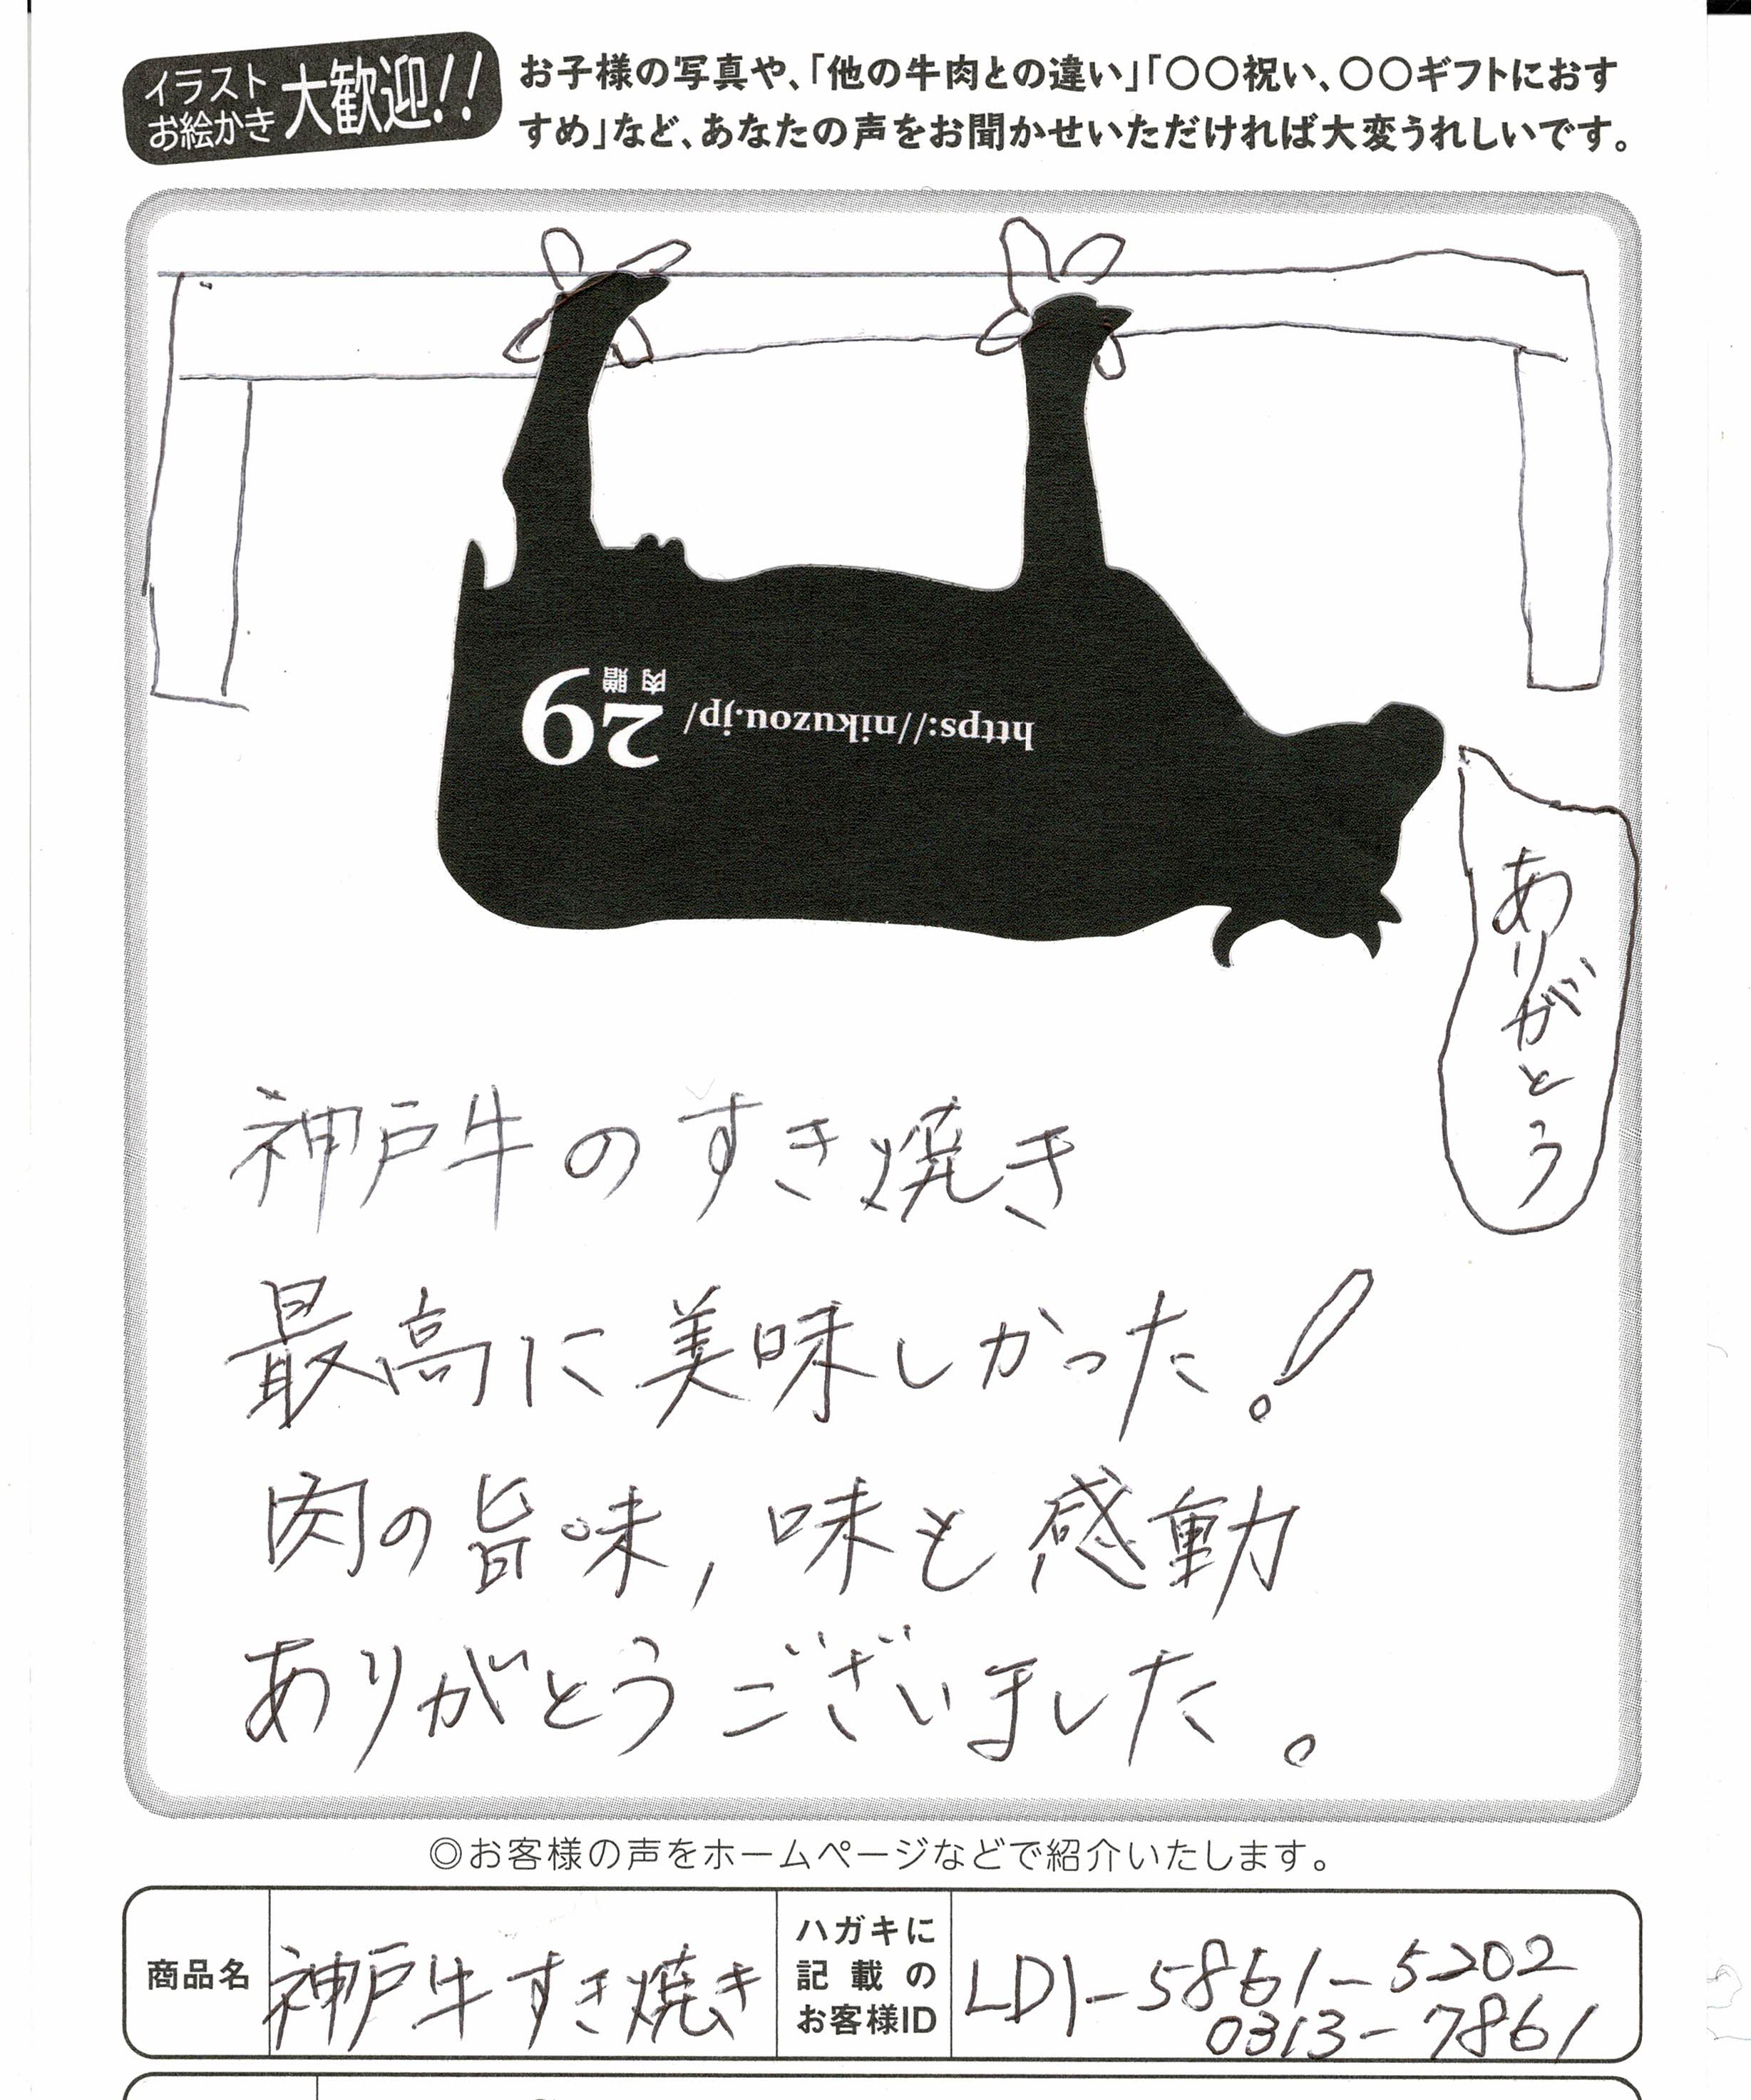 イラスト
お絵かき
大歓迎!!
お子様の写真や、「他の牛肉との違い」「〇〇祝い、〇〇ギフトにおす
すめ」など、あなたの声をお聞かせいただければ大変うれしいです。
https://nikuzou.jp/
29
肉贈
ありがとう
神戸牛のすき焼き
最高に美味しかった!
肉の旨味,味も感動
ありがとうございました。
◎お客様の声をホームページなどで紹介いたします。
商品名
神戸牛すき焼き
ハガキに
記載の
お客様ID
LD1-5861-5202
0313-7861